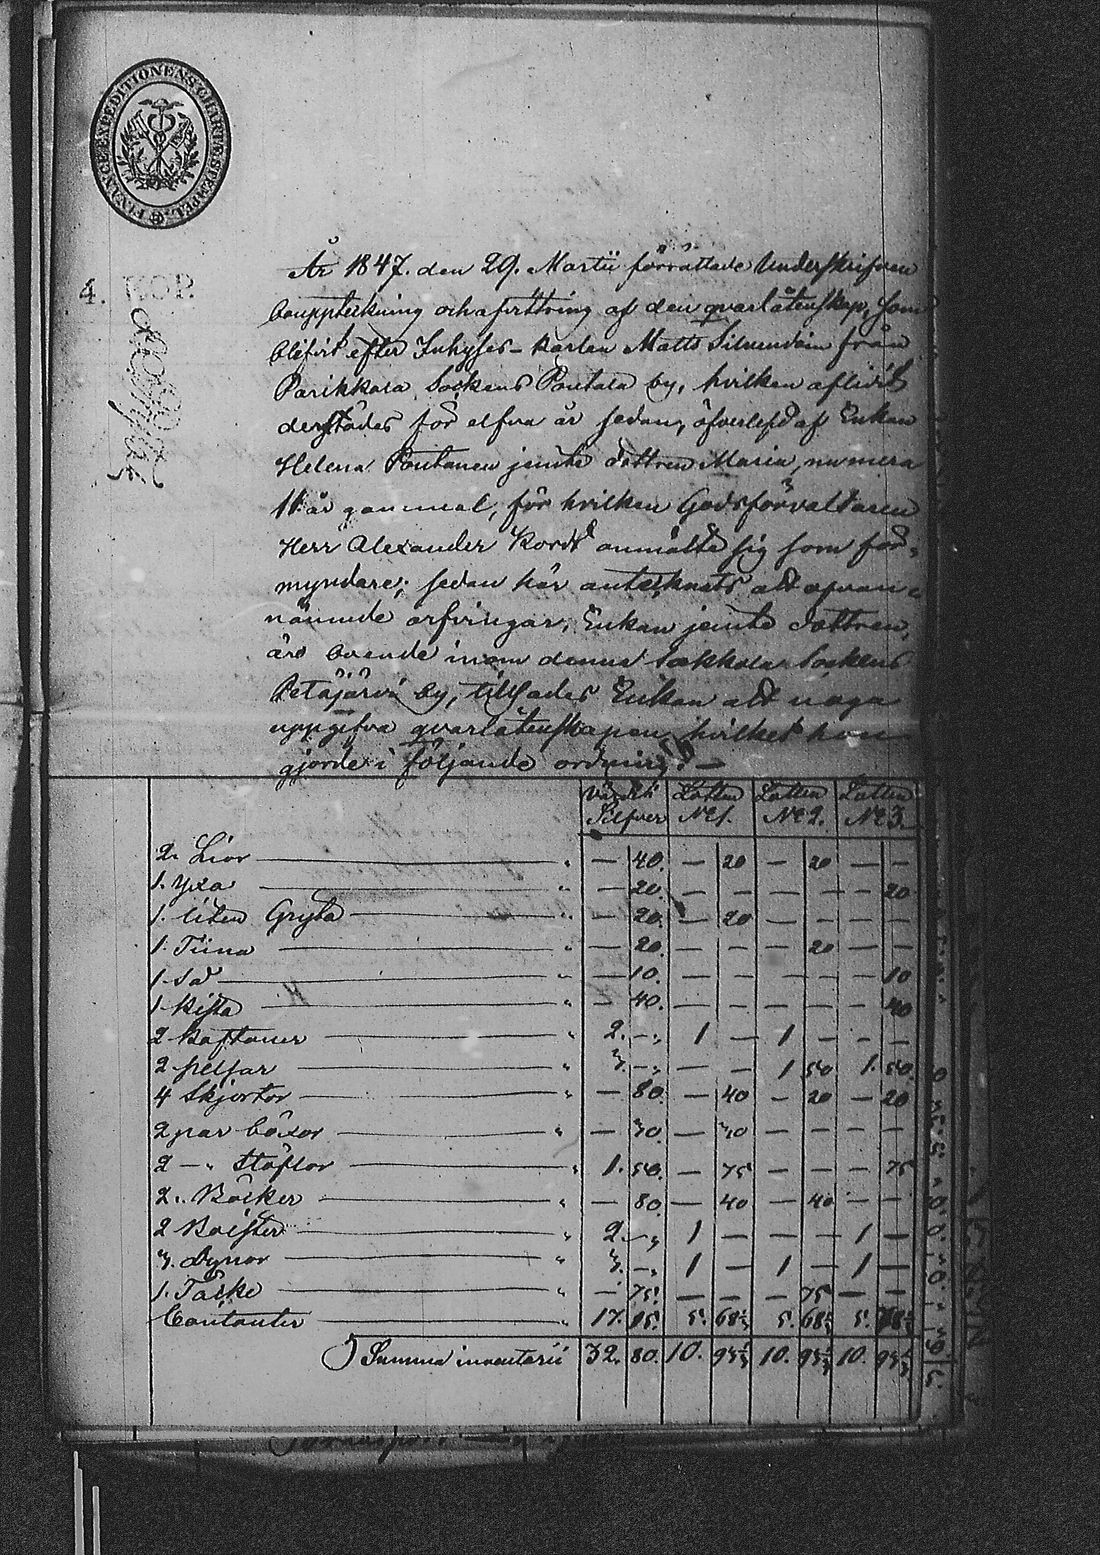 FINANCE-EXPEDITIONENS CHARTÆ STEMPEL.
4. KOP.
År 1847. den 29. Martii förrättade Underskrifven
bouppteckning och afvittring af den qvarlåtenskap, som
blifvit efter Inhyses-karlen Matts Silvendoin från
Parikkala Sockens Poutala by, hvilken aflidit
derstädes för elfva år sedan, öfverlefd af Enkan
Helena Poutanen jemte dottren Maria, numera
11 år gammal, för hvilken Godsförvaltaren
Herr Alexander Kordt anmälte sig som för-
myndare; sedan här antecknats att ofvan-
nämnde arfvingar, Enkan jemte dottren,
äro boende inom denna Sakkola Sockens
Petäjärvi by, tillsades Enkan att noga
uppgifva qvarlåtenskapen, hvilket hon
gjorde i följande ordning: —
Värde i Lotten Lotten Lotten
Silfver No 1. No 2. No 3.
2. Liar — " — 40. — 20 — 20 — —
1. Yxa — " — 20. — — — — — 20
1. liten Gryta — " — 20. — 20 — — — —
1. Tiina — " — 20. — — — 20 — —
1. Så — " — 10. — — — — — 10
1. Kista — " — 40. — — — — — 40
2 Kaftaner — " 2. — " 1 — 1 — — —
2 pelsar — " 3. — " — — 1 50 1. 50.
4 Skjortor — " — 80. — 40 — 20 — 20
2 par böxor — " — 30. — 30 — — — —
2 — " Stöflor — " 1. 50. — 75 — — — 75
2. Böcker — " — 80. — 40 — 40 — —
2 Bolster — " 2. — " 1 — — — 1 —
3. Dynor — " 3. — " 1 — 1 — 1 —
1. Täcke — " — 75. — — — 75 — —
Contanter — " 17. 05. 5. 68 1/3 5. 68 1/3 5. 68 1/3
Summa inventarii 32. 80. 10. 93 1/3 10. 93 1/3 10. 93 1/3